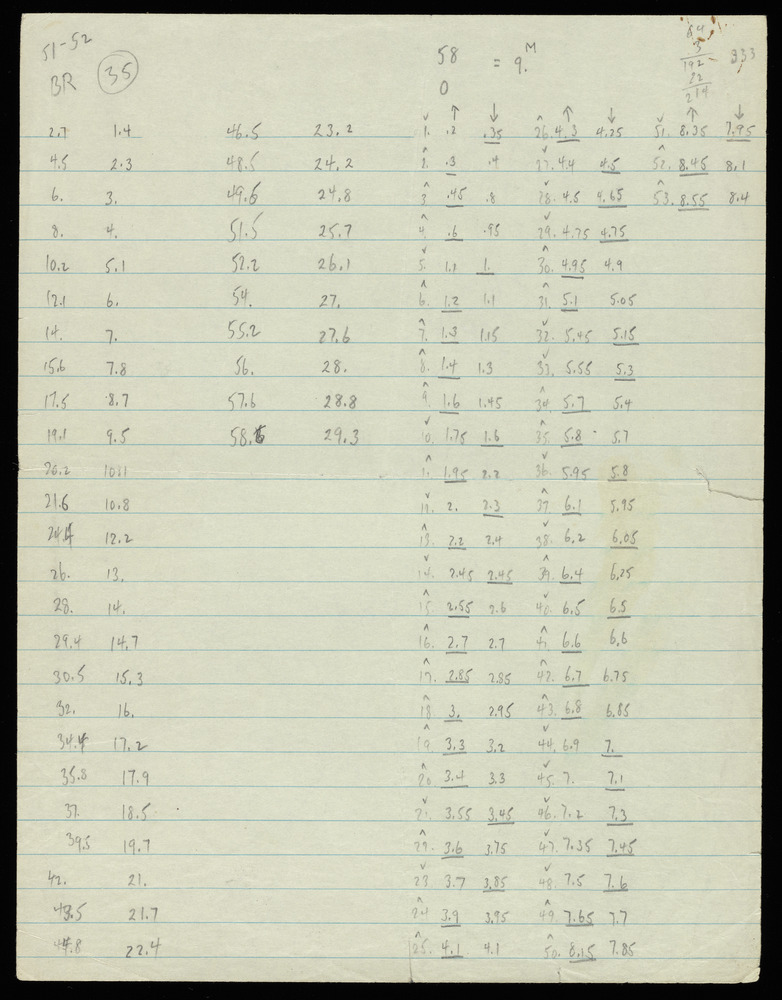 51-52
BR 35
58 = 9.M
0
64
3
192
22
214
333
↑ ↓ ↑ ↓ ↑ ↓
2.7 1.4 46.5 23.2 ˇ 1. .2 .35 ^ 26. 4.3 4.25 ˇ 51. 8.35 7.95
4.5 2.3 48.5 24.2 ^ 2. .3 .4 ˇ 27. 4.4 4.5 ^ 52. 8.45 8.1
6. 3. 49.6 24.8 ^ 3. .45 .8 ˇ 28. 4.5 4.65 ^ 53. 8.55 8.4
8. 4. 51.5 25.7 ^ 4. .6 .95 ˇ 29. 4.75 4.75
10.2 5.1 52.2 26.1 ˇ 5. 1.1 1. ^ 30. 4.95 4.9
12.1 6. 54. 27. ^ 6. 1.2 1.1 ^ 31. 5.1 5.05
14. 7. 55.2 27.6 ^ 7. 1.3 1.15 ˇ 32. 5.45 5.15
15.6 7.8 56. 28. ^ 8. 1.4 1.3 ˇ 33. 5.55 5.3
17.5 8.7 57.6 28.8 ^ 9. 1.6 1.45 ^ 34. 5.7 5.4
19.1 9.5 58.6 29.3 ˇ 10. 1.75 1.6 ^ 35. 5.8 5.7
20.2 10.1 ^ 11. 1.95 2.2 ˇ 36. 5.95 5.8
21.6 10.8 ˇ 12. 2. 2.3 ^ 37. 6.1 5.95
24.4 12.2 ^ 13. 2.2 2.4 ˇ 38. 6.2 6.05
26. 13. ˇ 14. 2.45 2.45 ^ 39. 6.4 6.25
28. 14. ^ 15. 2.55 2.6 ˇ 40. 6.5 6.5
29.4 14.7 ^ 16. 2.7 2.7 ^ 41. 6.6 6.6
30.5 15.3 ^ 17. 2.85 2.85 ^ 42. 6.7 6.75
32. 16. ^ 18. 3. 2.95 ^ 43. 6.8 6.85
34.4 17.2 ^ 19. 3.3 3.2 ˇ 44. 6.9 7.
35.8 17.9 ^ 20. 3.4 3.3 ˇ 45. 7. 7.1
37. 18.5 ˇ 21. 3.55 3.45 ˇ 46. 7.2 7.3
39.5 19.7 ^ 22. 3.6 3.75 ˇ 47. 7.35 7.45
42. 21. ˇ 23. 3.7 3.85 ˇ 48. 7.5 7.6
43.5 21.7 ^ 24. 3.9 3.95 ^ 49. 7.65 7.7
44.8 22.4 ^ 25. 4.1 4.1 ^ 50. 8.15 7.85